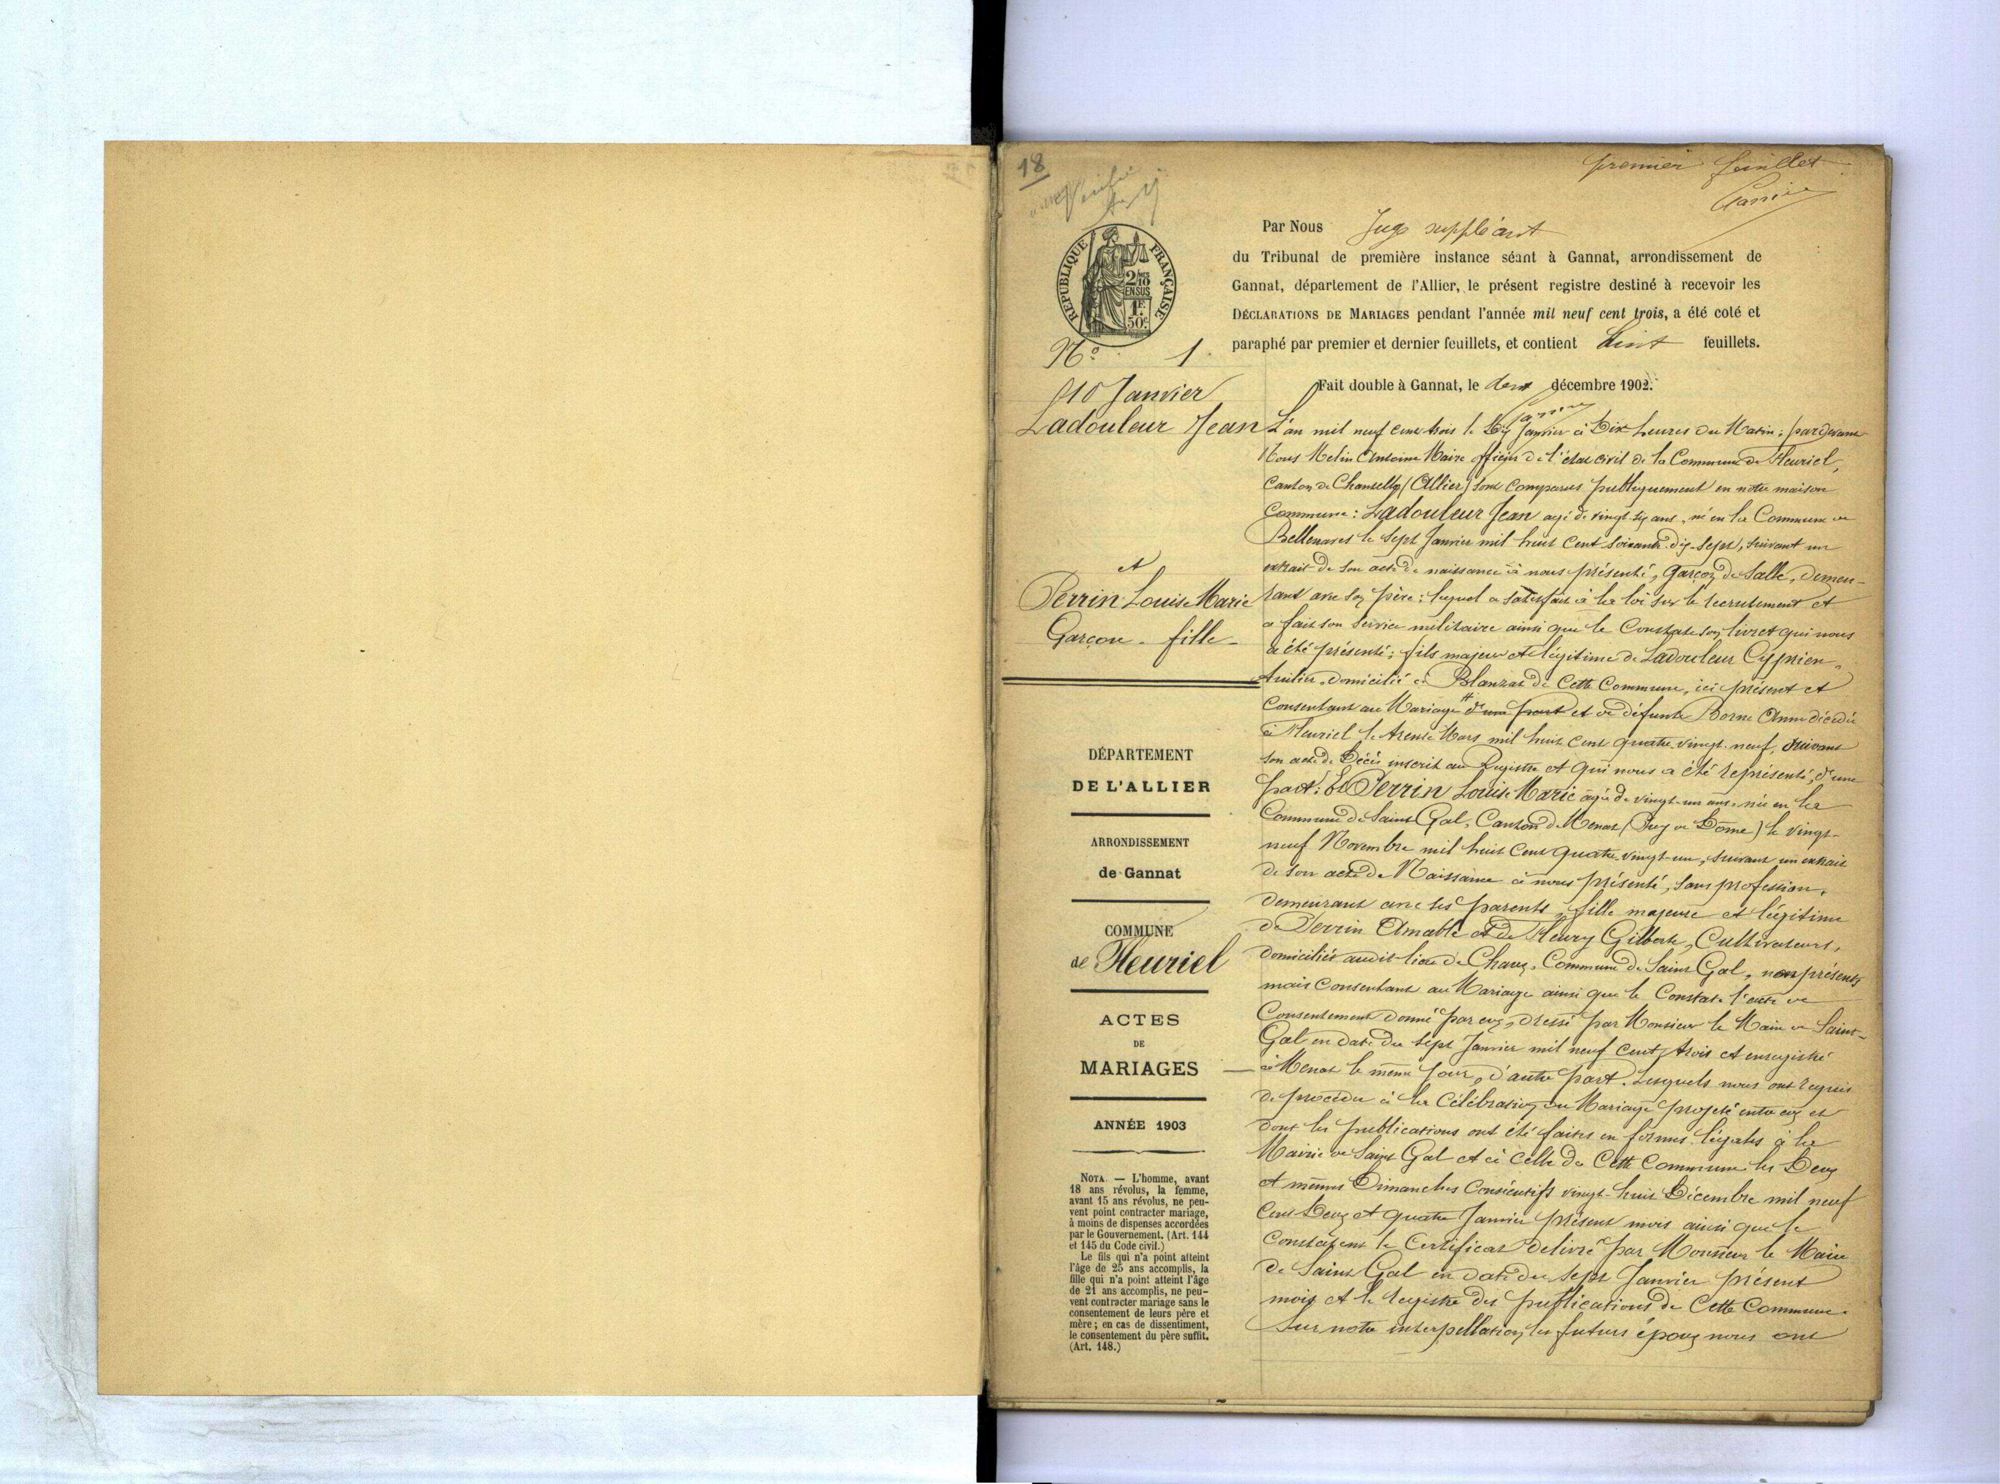 18
premier feuillet
Par Nous Juge suppléant
du Tribunal de première instance séant à Gannat, arrondissement de
Gannat, département de l'Allier, le présent registre destiné à recevoir les
DÉCLARATIONS DE MARIAGES pendant l'année mil neuf cent trois, a été coté et
paraphé par premier et dernier feuillets, et contient huit feuillets.
Fait double à Gannat, le deux décembre 1902.
RÉPUBLIQUE FRANÇAISE
2/10
EN SUS
1F.
50c.
N° 1
10 Janvier
Ladouleur Jean
et
Perrin Louise Marie
Garçon - fille
DÉPARTEMENT
DE L'ALLIER
ARRONDISSEMENT
de Gannat
COMMUNE
de Fleuriel
ACTES
DE
MARIAGES
ANNÉE 1903
NOTA. — L'homme, avant
18 ans révolus, la femme,
avant 15 ans révolus, ne peu-
vent point contracter mariage,
à moins de dispenses accordées
par le Gouvernement. (Art. 144
et 145 du Code civil.)
Le fils qui n'a point atteint
l'âge de 25 ans accomplis, la
fille qui n'a point atteint l'âge
de 21 ans accomplis, ne peu-
vent contracter mariage sans le
consentement de leurs père et
mère ; en cas de dissentiment,
le consentement du père suffit.
(Art. 148.)
L'an mil neuf cent trois le Dix Janvier à Dix heures du Matin ; pardevant
Nous Melin Antoine Maire officier de l'état civil de la Commune de Fleuriel,
Canton de Chantelle (Allier) sont comparus publiquement en notre maison
Commune : Ladouleur Jean agé de vingt six ans, né en la Commune de
Bellenaves le sept Janvier mil huit cent soixante-dix-sept, suivant un
extrait de son acte de naissance à nous présenté, Garçon de salle, demeu-
rant avec son père ; lequel a satisfait à la loi sur le recrutement et
a fait son service militaire ainsi que le Constate son livret qui nous
a été présenté ; fils majeur et légitime de Ladouleur Cyprien,
domicilié à Blanzat de Cette Commune, ici présent et
Consentant au Mariage # d'une part et de défunte Borne Anne décédée
à Fleuriel le trente Mars mil huit cent quatre-vingt-neuf, suivant
son acte de Décès inscrit au Registre et qui nous a été représenté, d'une
part ; Et Perrin Louise Marie agée de vingt-un ans, née en la
Commune de Saint Gal, Canton de Menat (Puy de Dôme) le vingt-
neuf Novembre mil huit cent quatre-vingt-un, suivant un extrait
de son acte de Naissance à nous présenté, sans profession,
demeurant avec ses parents ; fille majeure et légitime
de Perrin Amable et de Fleury Gilberte, Cultivateurs,
domiciliés audit lieu de Chaux, Commune de Saint Gal, non présents
mais Consentant au Mariage ainsi que le Constate l'acte de
Consentement donné par eux, dressé par Monsieur le Maire de Saint-
Gal en date du sept Janvier mil neuf cent trois et enregistré
à Menat le même jour, d'autre part. Lesquels nous ont requis
de procéder à la Célébration du Mariage projeté entre eux et
dont les publications ont été faites en formes légales à la
Mairie de Saint Gal et à celle de Cette Commune les Deux
et mêmes Dimanches Consécutifs vingt-huit Décembre mil neuf
Cent Deux et quatre Janvier présent mois ainsi que le
Constatent le Certificat délivré par Monsieur le Maire
de Saint Gal en date du sept Janvier présent
mois et le registre des publications de Cette Commune.
Sur notre interpellation les futurs époux nous ont